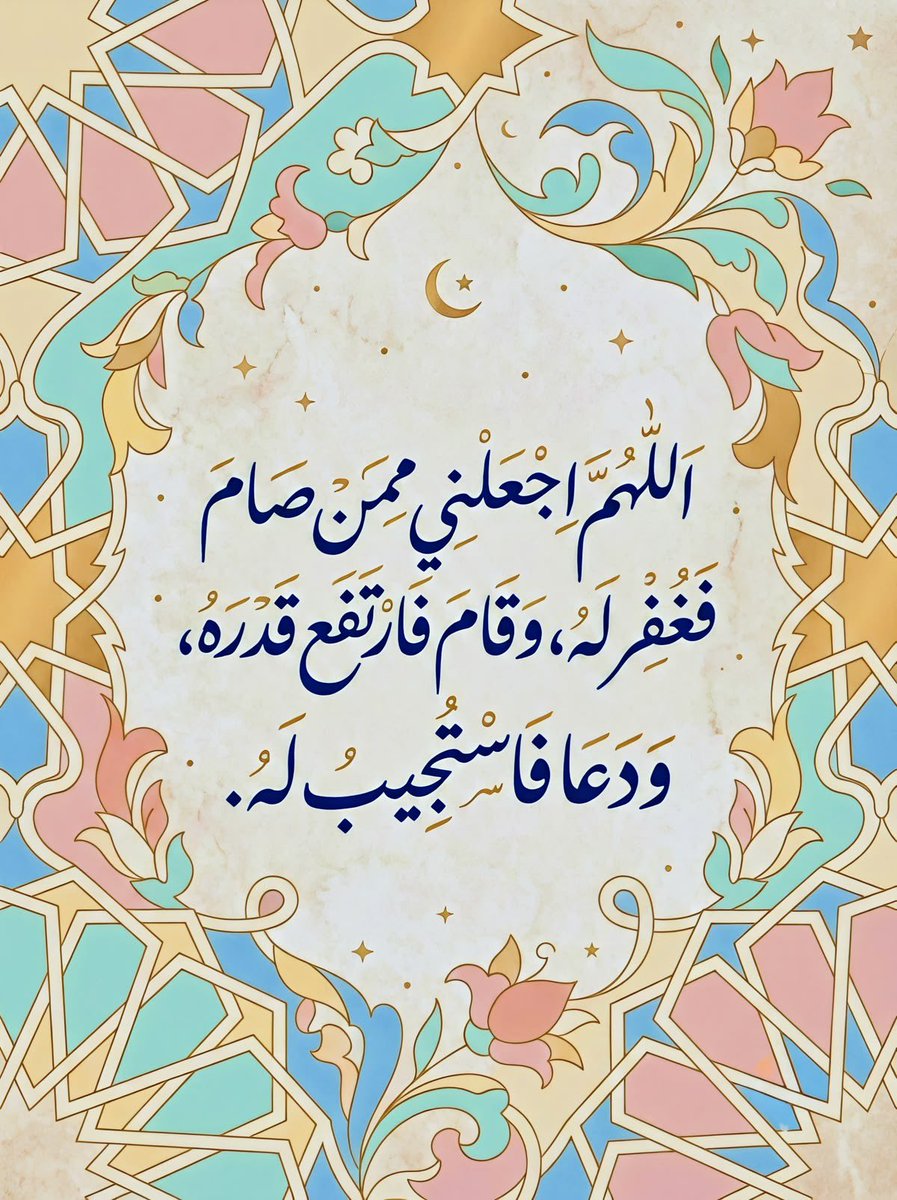 اَللّٰهُمَّ اِجْعَلْنِي مِمَنْ صَامَ
فَغُفِرْ لَهُ، وَقَامَ فَارْتَفَع قَدْرَهُ،
وَدَعَا فَاسْتُجِيبُ لَهُ.